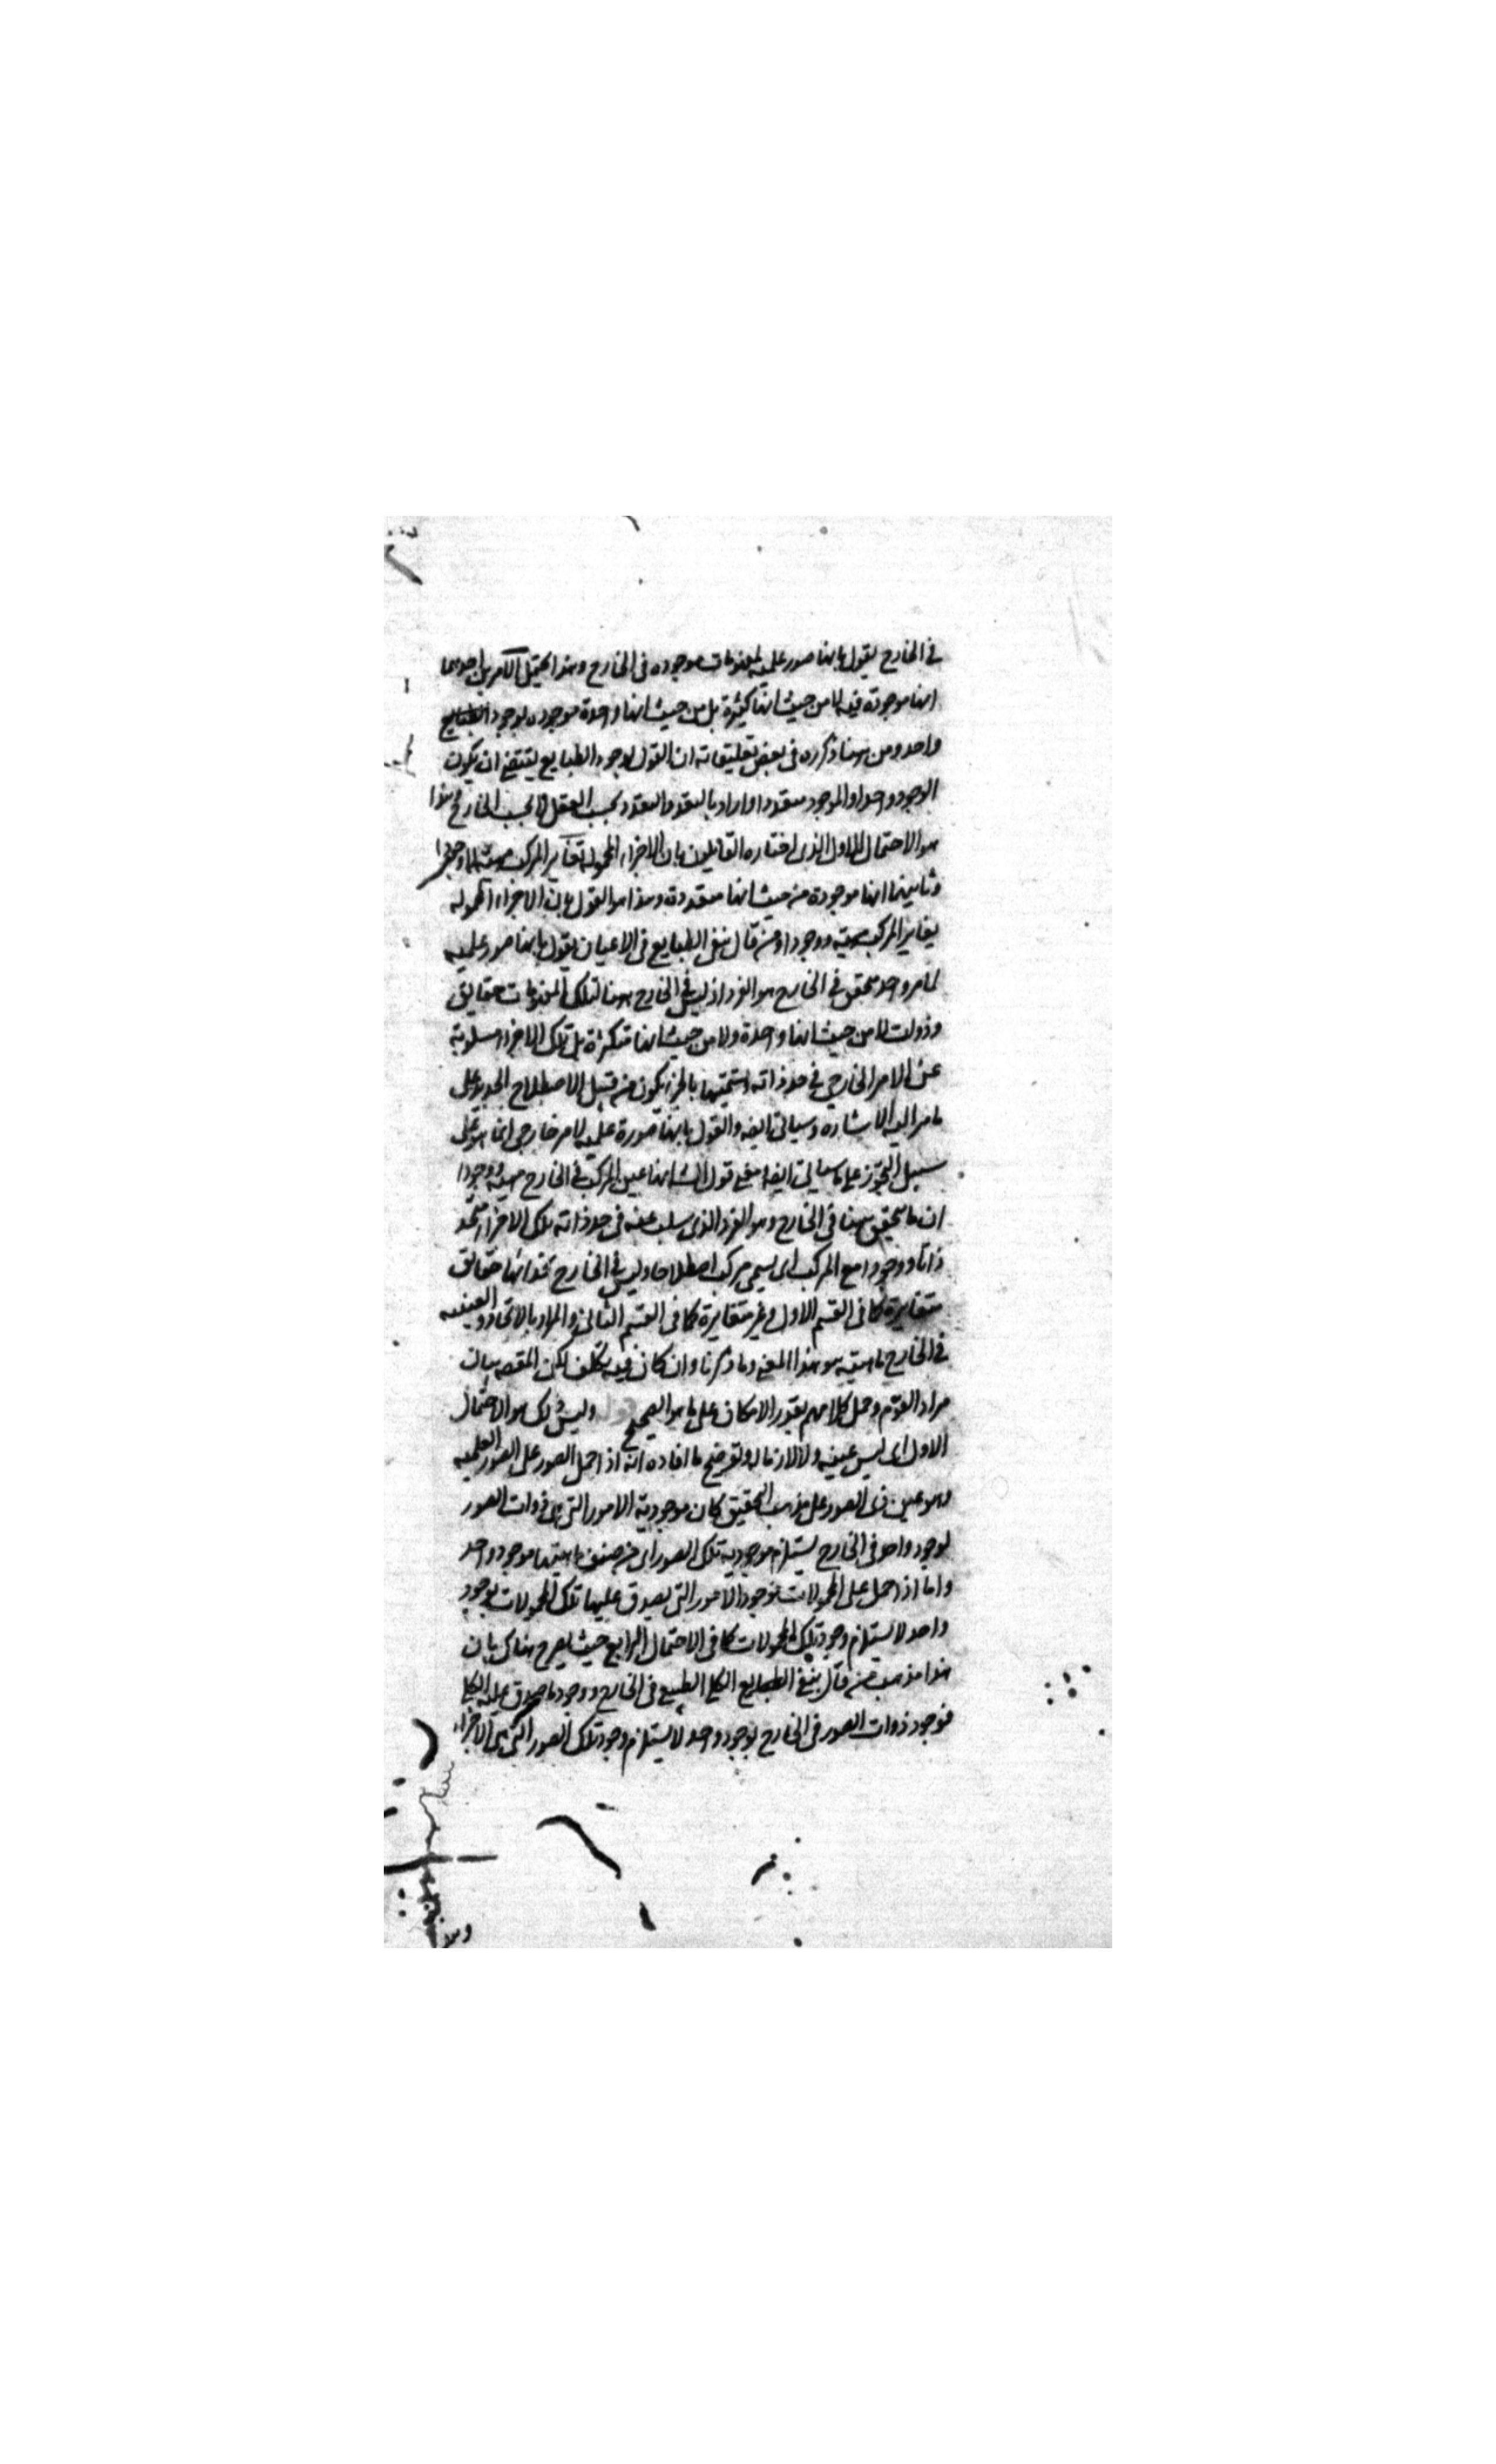 في الخارج يقول بانها صور علمية لمفهومات موجوده فى الخارج وهذا يحتمل الامرين احدهما
انها موجودة فيه لا من حيث انها كثيرة بل من حيث انها واحدة موجوده بوجود الطبايع
واحد ومن هنا ذكره فى بعض تعليقاته ان القول بوجود الطبايع يقتضى ان يكون
الوجود واحدا والموجود متعددا واراد بالتعدد التعدد بحسب العقل لا بحسب الخارج وهذا
هو الاحتمال الاول الذى اختاره القايلون بان الاجزاء المحمولة تغاير المركب مهية لا وجودا
وثانيهما انها موجودة من حيث انها متعددة وهذا هو القول بان الاجزاء المحموله
يغاير المركب مهية ووجودا ومن قال بنفى الطبايع فى الاعيان يقول بانها صور علميه
لامر واحد متحقق فى الخارج هو الفرد اذ ليس فى الخارج هنا لتلك المفهومات حقايق
وذوات لا من حيث انها واحدة ولا من حيث انها متكثرة بل تلك الاجزاء مسلوبة
عن الامر الخارجى فى حد ذاته وتسميتها بالجزء يكون من قبيل الاصطلاح الجديد على
ما مر اليه الاشاره وسياتى ايضا والقول بانها صورة علميه لامر خارجى انما هو على
سبيل التجوز على ما سياتى ايضا ومعنى قوله انها عين المركب فى الخارج مهية ووجودا
ان ما تحقق هنا فى الخارج وهو الفرد الذى سلب عنه فى حد ذاته تلك الاجزاء متحد
ذاتا ووجودا مع المركب اى يسمى مركبا اصطلاحا وليس فى الخارج بحذائها حقايق
متغايرة كما فى القسم الاول وغير متغايرة كما فى القسم الثانى والمراد بالاتحاد والعينيه
فى الخارج ماهيته هو هذا المعنى وما ذكرنا وان كان فيه تكلف لكن المقصد بيان
مراد القوم وحمل كلامهم بقدر الامكان على ما هو الصحيح وليس ذلك هو الاحتمال
الاول اى ليس عينه ولا لازما له وتوضيح ما افاده انه اذا حمل الصور على الصور العلميه
وهو عين ذى الصور على مذهب التحقيق كان موجودية الامور التى هى ذوات الصور
بوجود واحد فى الخارج يستلزم موجودية تلك الصور اى من ماهيتها موجود واحد
واما اذا حمل على المحمولات فوجود الامور التى يصدق عليها تلك المحمولات بوجود
واحد لا يستلزم وجود تلك المحمولات كما فى الاحتمال الرابع حيث يصرح هناك بان
هذا مذهب من قال بنفى الطبايع الكلى الطبيعى فى الخارج ووجود ما صدق عليه الكلى
فوجود ذوات الصور فى الخارج بوجود واحد لا يستلزم وجود تلك الصور التى هى الاجزاء